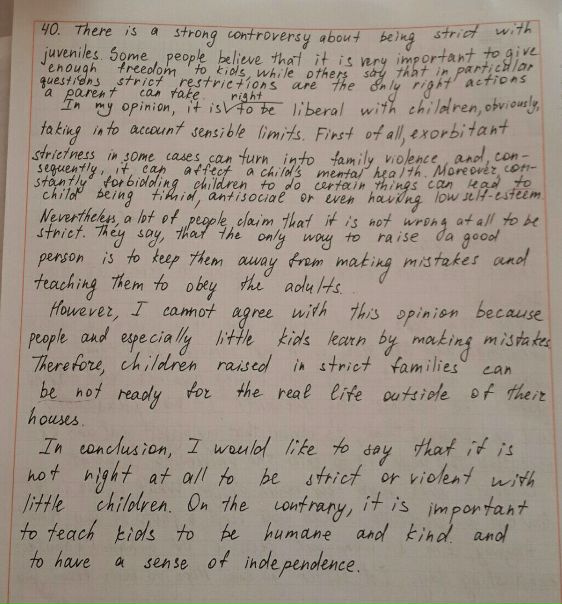 40. There is a strong controversy about being strict with
juveniles. Some people believe that it is very important to give
enough freedom to kids, while others say that in particular
questions strict restrictions are the only right actions
a parent can take.
In my opinion, it is right to be liberal with children, obviously,
taking into account sensible limits. First of all, exorbitant
strictness in some cases can turn into family violence, and, con-
sequently, it can affect a child's mental health. Moreover, con-
stantly forbidding children to do certain things can lead to
child being timid, antisocial or even having low self-esteem.
Nevertheless, a lot of people claim that it is not wrong at all to be
strict. They say, that the only way to raise a good
person is to keep them away from making mistakes and
teaching them to obey the adults.
However, I cannot agree with this opinion because
people and especially little kids learn by making mistakes.
Therefore, children raised in strict families can
be not ready for the real life outside of their
houses.
In conclusion, I would like to say that it is
not right at all to be strict or violent with
little children. On the contrary, it is important
to teach kids to be humane and kind and
to have a sense of independence.